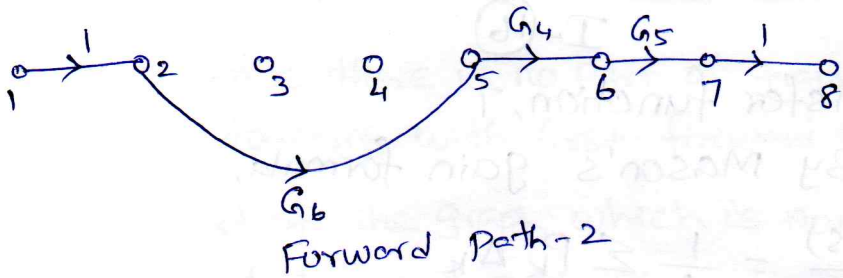 1 G4 G5 1
1 2 3 4 5 6 7 8
G6
Forward Path-2